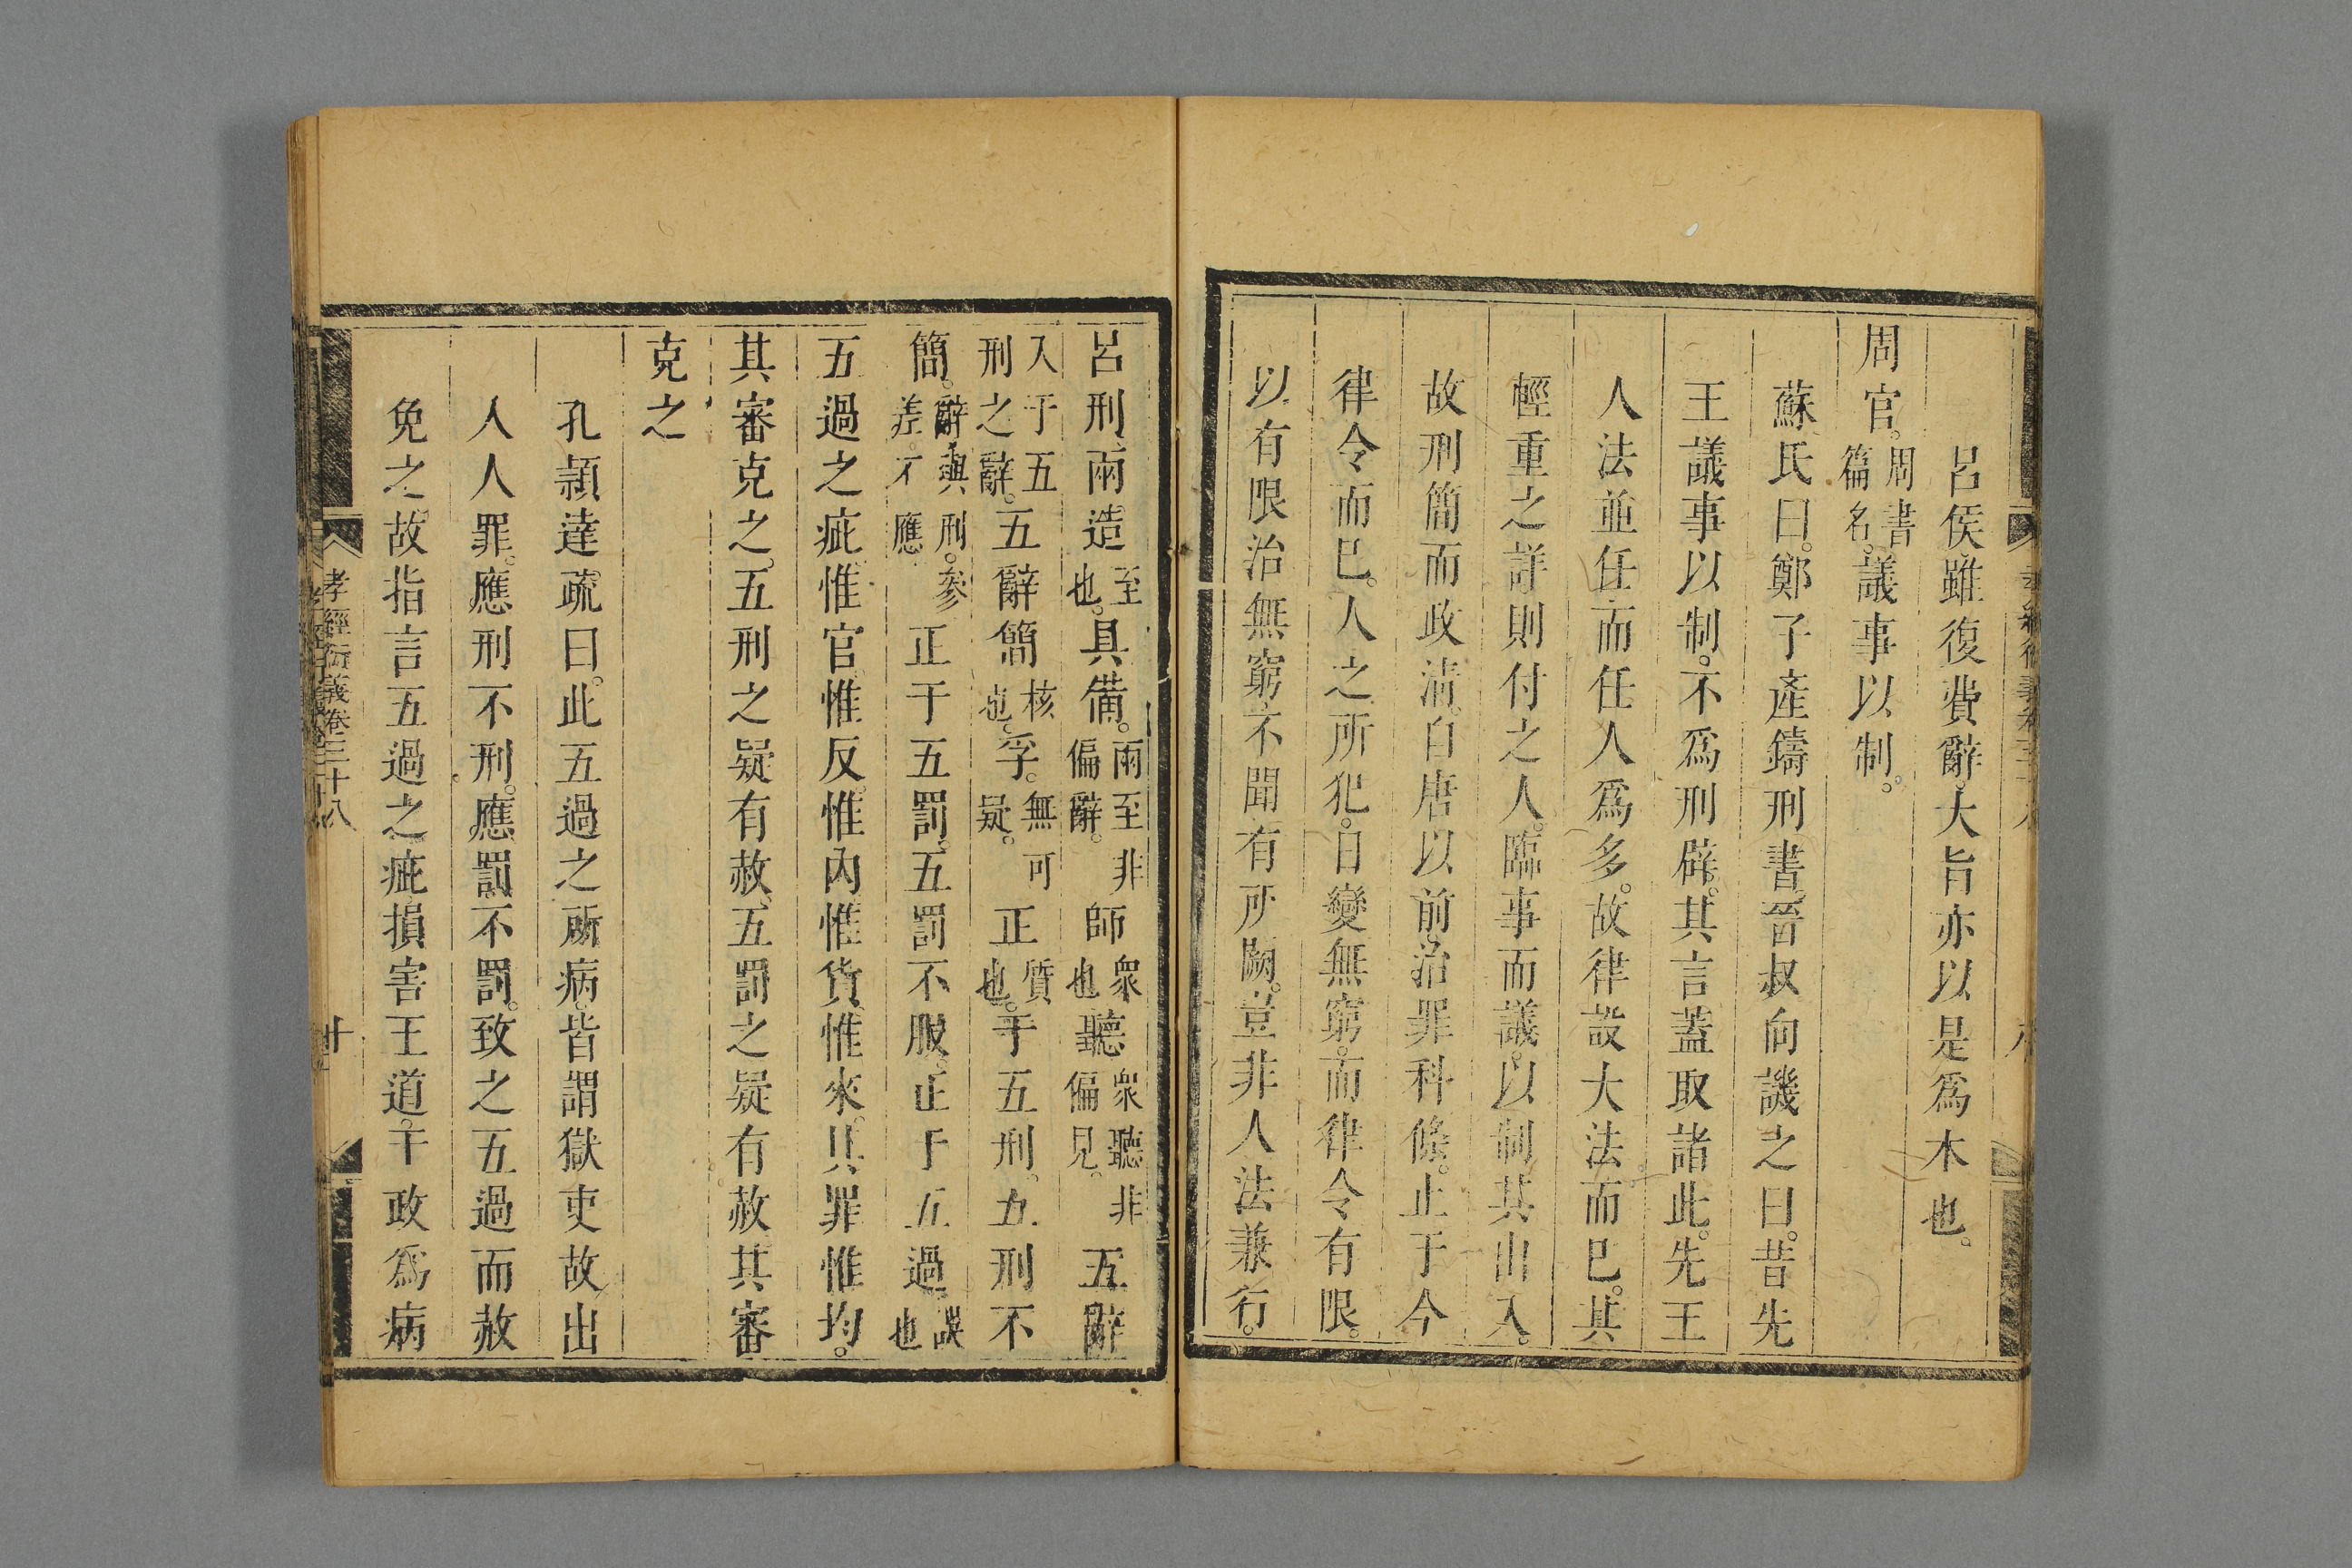 呂侯雖復費辭大旨亦以是爲本也。
周官。周書篇名。議事以制。
蘇氏曰。鄭子產鑄刑書。晉叔向譏之曰。昔先
王議事以制。不爲刑辟。其言蓋取諸此。先王
人法並任而任人爲多。故律設大法而已。其
輕重之詳則付之人。臨事而議。以制其出入。
故刑簡而政清。自唐以前。治罪科條。止于今
律令而已。人之所犯。日變無窮。而律令有限。
以有限治無窮。不聞有所闕。豈非人法兼行。
呂刑。兩造至也。具備。兩至非偏辭。師衆也聽衆聽非偏見。五辭
入于五刑之辭。五辭簡核也。孚。無可疑。正質也。于五刑。五刑不
簡。辭與刑。參差不應正于五罰。五罰不服。正于五過。誤也
五過之疵。惟官。惟反。惟內。惟貨。惟來。其罪惟均。
其審克之。五刑之疑有赦。五罰之疑有赦。其審
克之
孔頴達疏曰。此五過之所病。皆謂獄吏故出
人人罪。應刑不刑。應罰不罰。致之五過而赦
免之。故指言五過之疵。損害王道。于政爲病
孝經衍義卷三十八
十